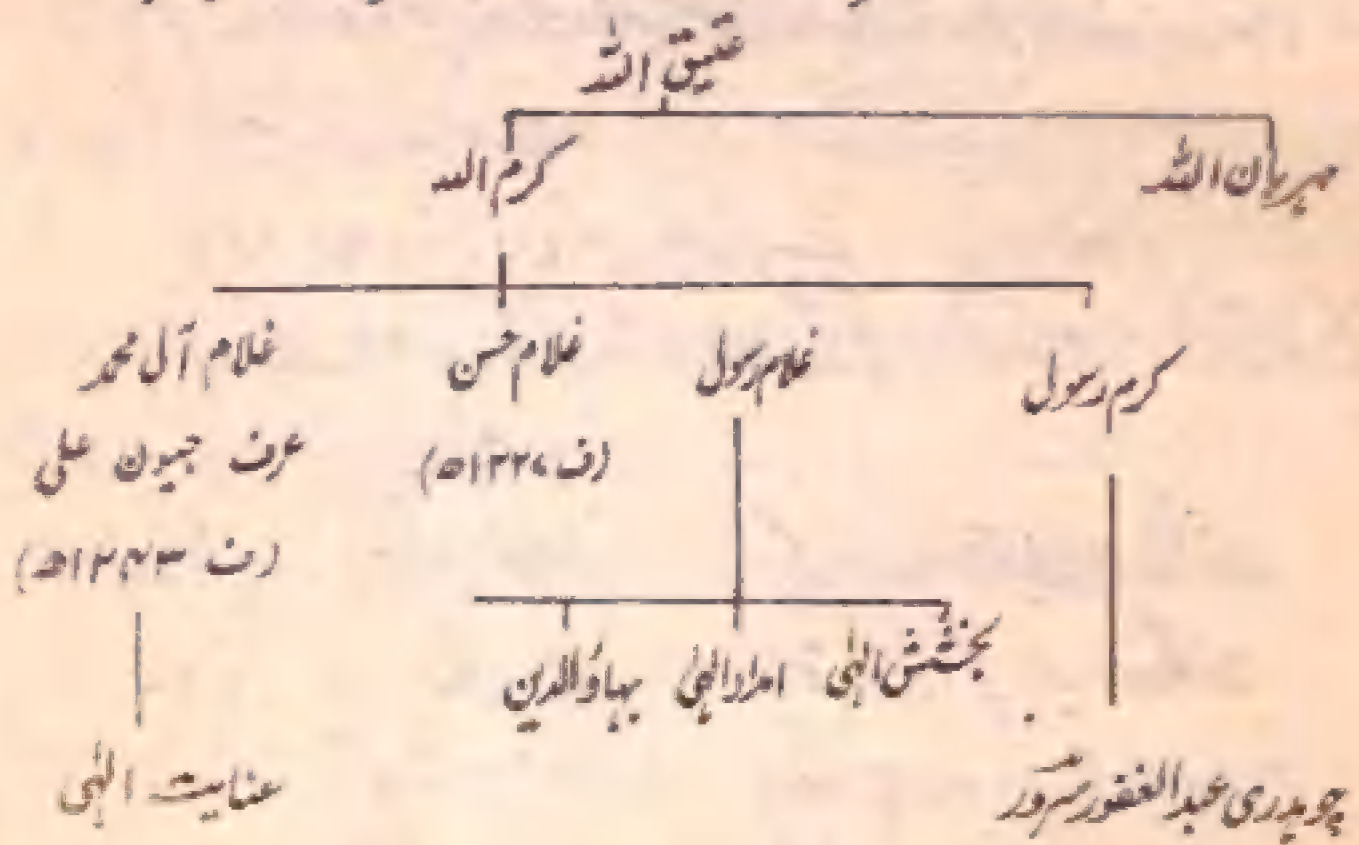 عتیق اللہ
مہربان اللہ کرم اللہ
کرم رسول غلام رسول غلام حسن غلام آل محمد
عرف جیون علی
(ف ۱۲۲۷ھ)
(ف ۱۲۴۳ھ)
بخشش الٰہی امداد الٰہی بہاؤالدین
چوہدری عبدالغفور سرور عنایت الٰہی